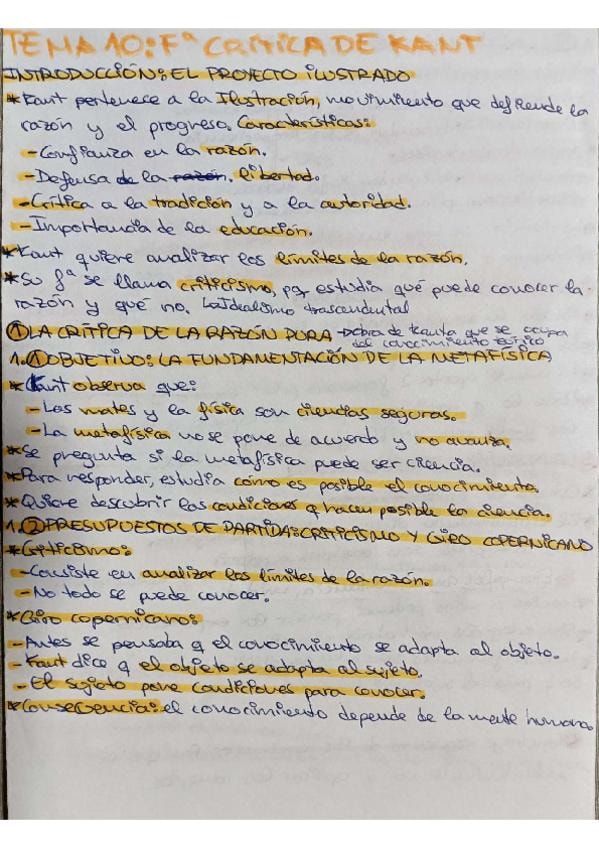 TEMA 10: Fª CRÍTICA DE KANT
INTRODUCCIÓN: EL PROYECTO ILUSTRADO
*Kant pertenece a la Ilustración, movimiento que defiende la
razón y el progreso. Características:
-Confianza en la razón.
-Defensa de la razón. libertad.
-Crítica a la tradición y a la autoridad.
-Importancia de la educación.
*Kant quiere analizar los límites de la razón.
*Su fª se llama criticismo, pq estudia qué puede conocer la
razón y qué no. ↳Idealismo trascendental
①LA CRÍTICA DE LA RAZÓN PURA →obra de Kant q que se ocupa
del conocimiento teórico
1.①OBJETIVO: LA FUNDAMENTACIÓN DE LA METAFÍSICA
*Kant observa que:
-Las mates y la física son ciencias seguras.
-La metafísica no se pone de acuerdo y no avanza.
*Se pregunta si la metafísica puede ser ciencia.
*Para responder, estudia cómo es posible el conocimiento.
*Quiere descubrir las condiciones q hacen posible la ciencia.
1.②PRESUPUESTOS DE PARTIDA: CRITICISMO Y GIRO COPERNICANO
*Criticismo:
-Consiste en analizar los límites de la razón.
-No todo se puede conocer.
*Giro copernicano:
-Antes se pensaba q el conocimiento se adapta al objeto.
-Kant dice q el objeto se adapta al sujeto.
-El sujeto pone condiciones para conocer.
*Consecuencia: el conocimiento depende de la mente humana.